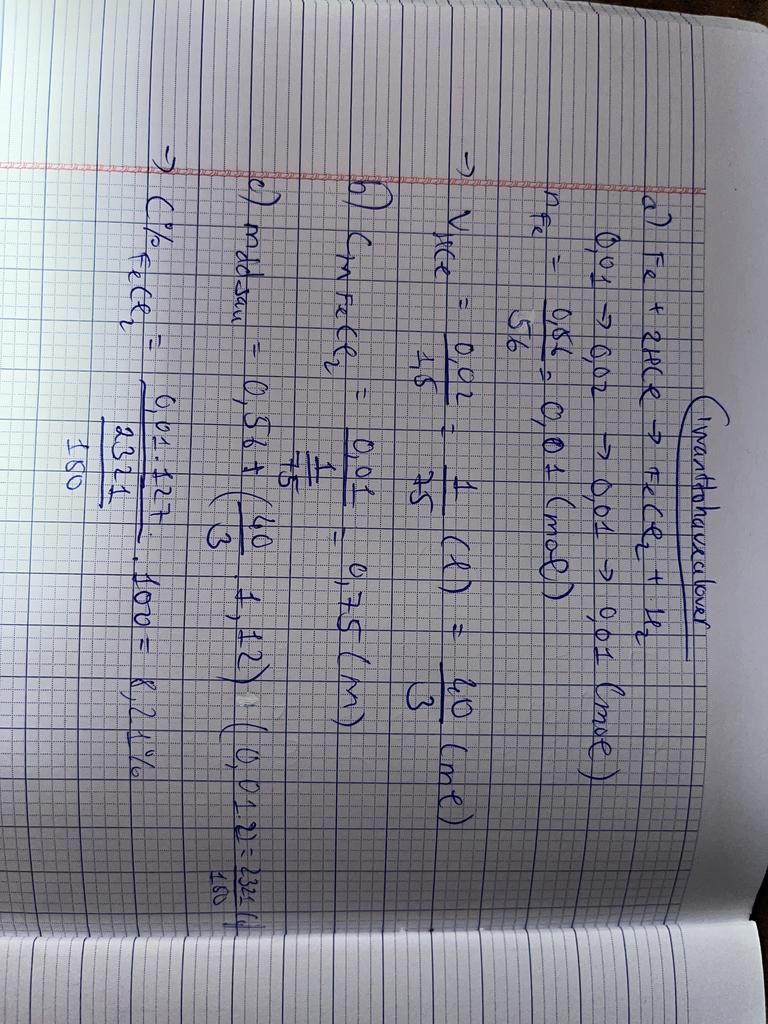 Iwanttohavealover
a) Fe + 2HCl → FeCl₂ + H₂
0,01 → 0,02 → 0,01 → 0,01 (mol)
nFe = 0,56/56 = 0,01 (mol)
→ VHCl = 0,02/1,5 = 1/75 (l) = 40/3 (ml)
b) CmFeCl₂ = 0,01/(1/75) = 0,75 (M)
c) mddsau = 0,56 + (40/3 . 1,12) (0,01.2) = 2321/150
→ C%FeCl₂ = 0,01.127/(2321/150) . 100 = 8,21%